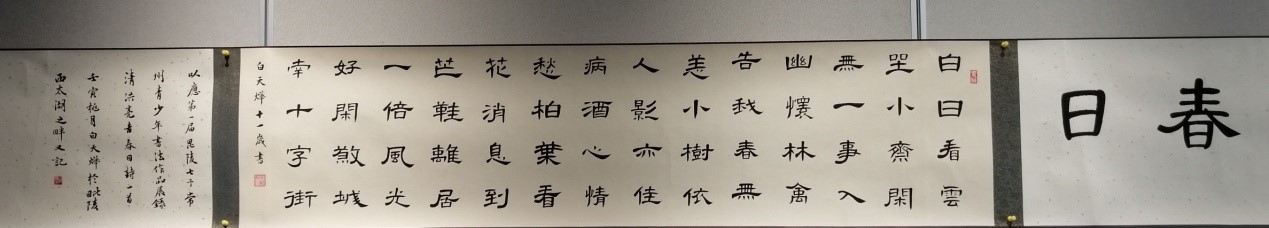 春日
白日看雲
坐小齋閑
無一事入
幽懷林禽
告我春無
恙小樹依
人影亦佳
病酒心情
愁柏葉看
花消息到
芒鞋離居
一倍風光
好閑煞城
南十字街
白天燁十一歲書
以應第一届毘陵七子常
州青少年書法作品展錄
清洪亮吉春日詩一首
壬寅桃月白天燁於毗陵
西太湖之畔又記